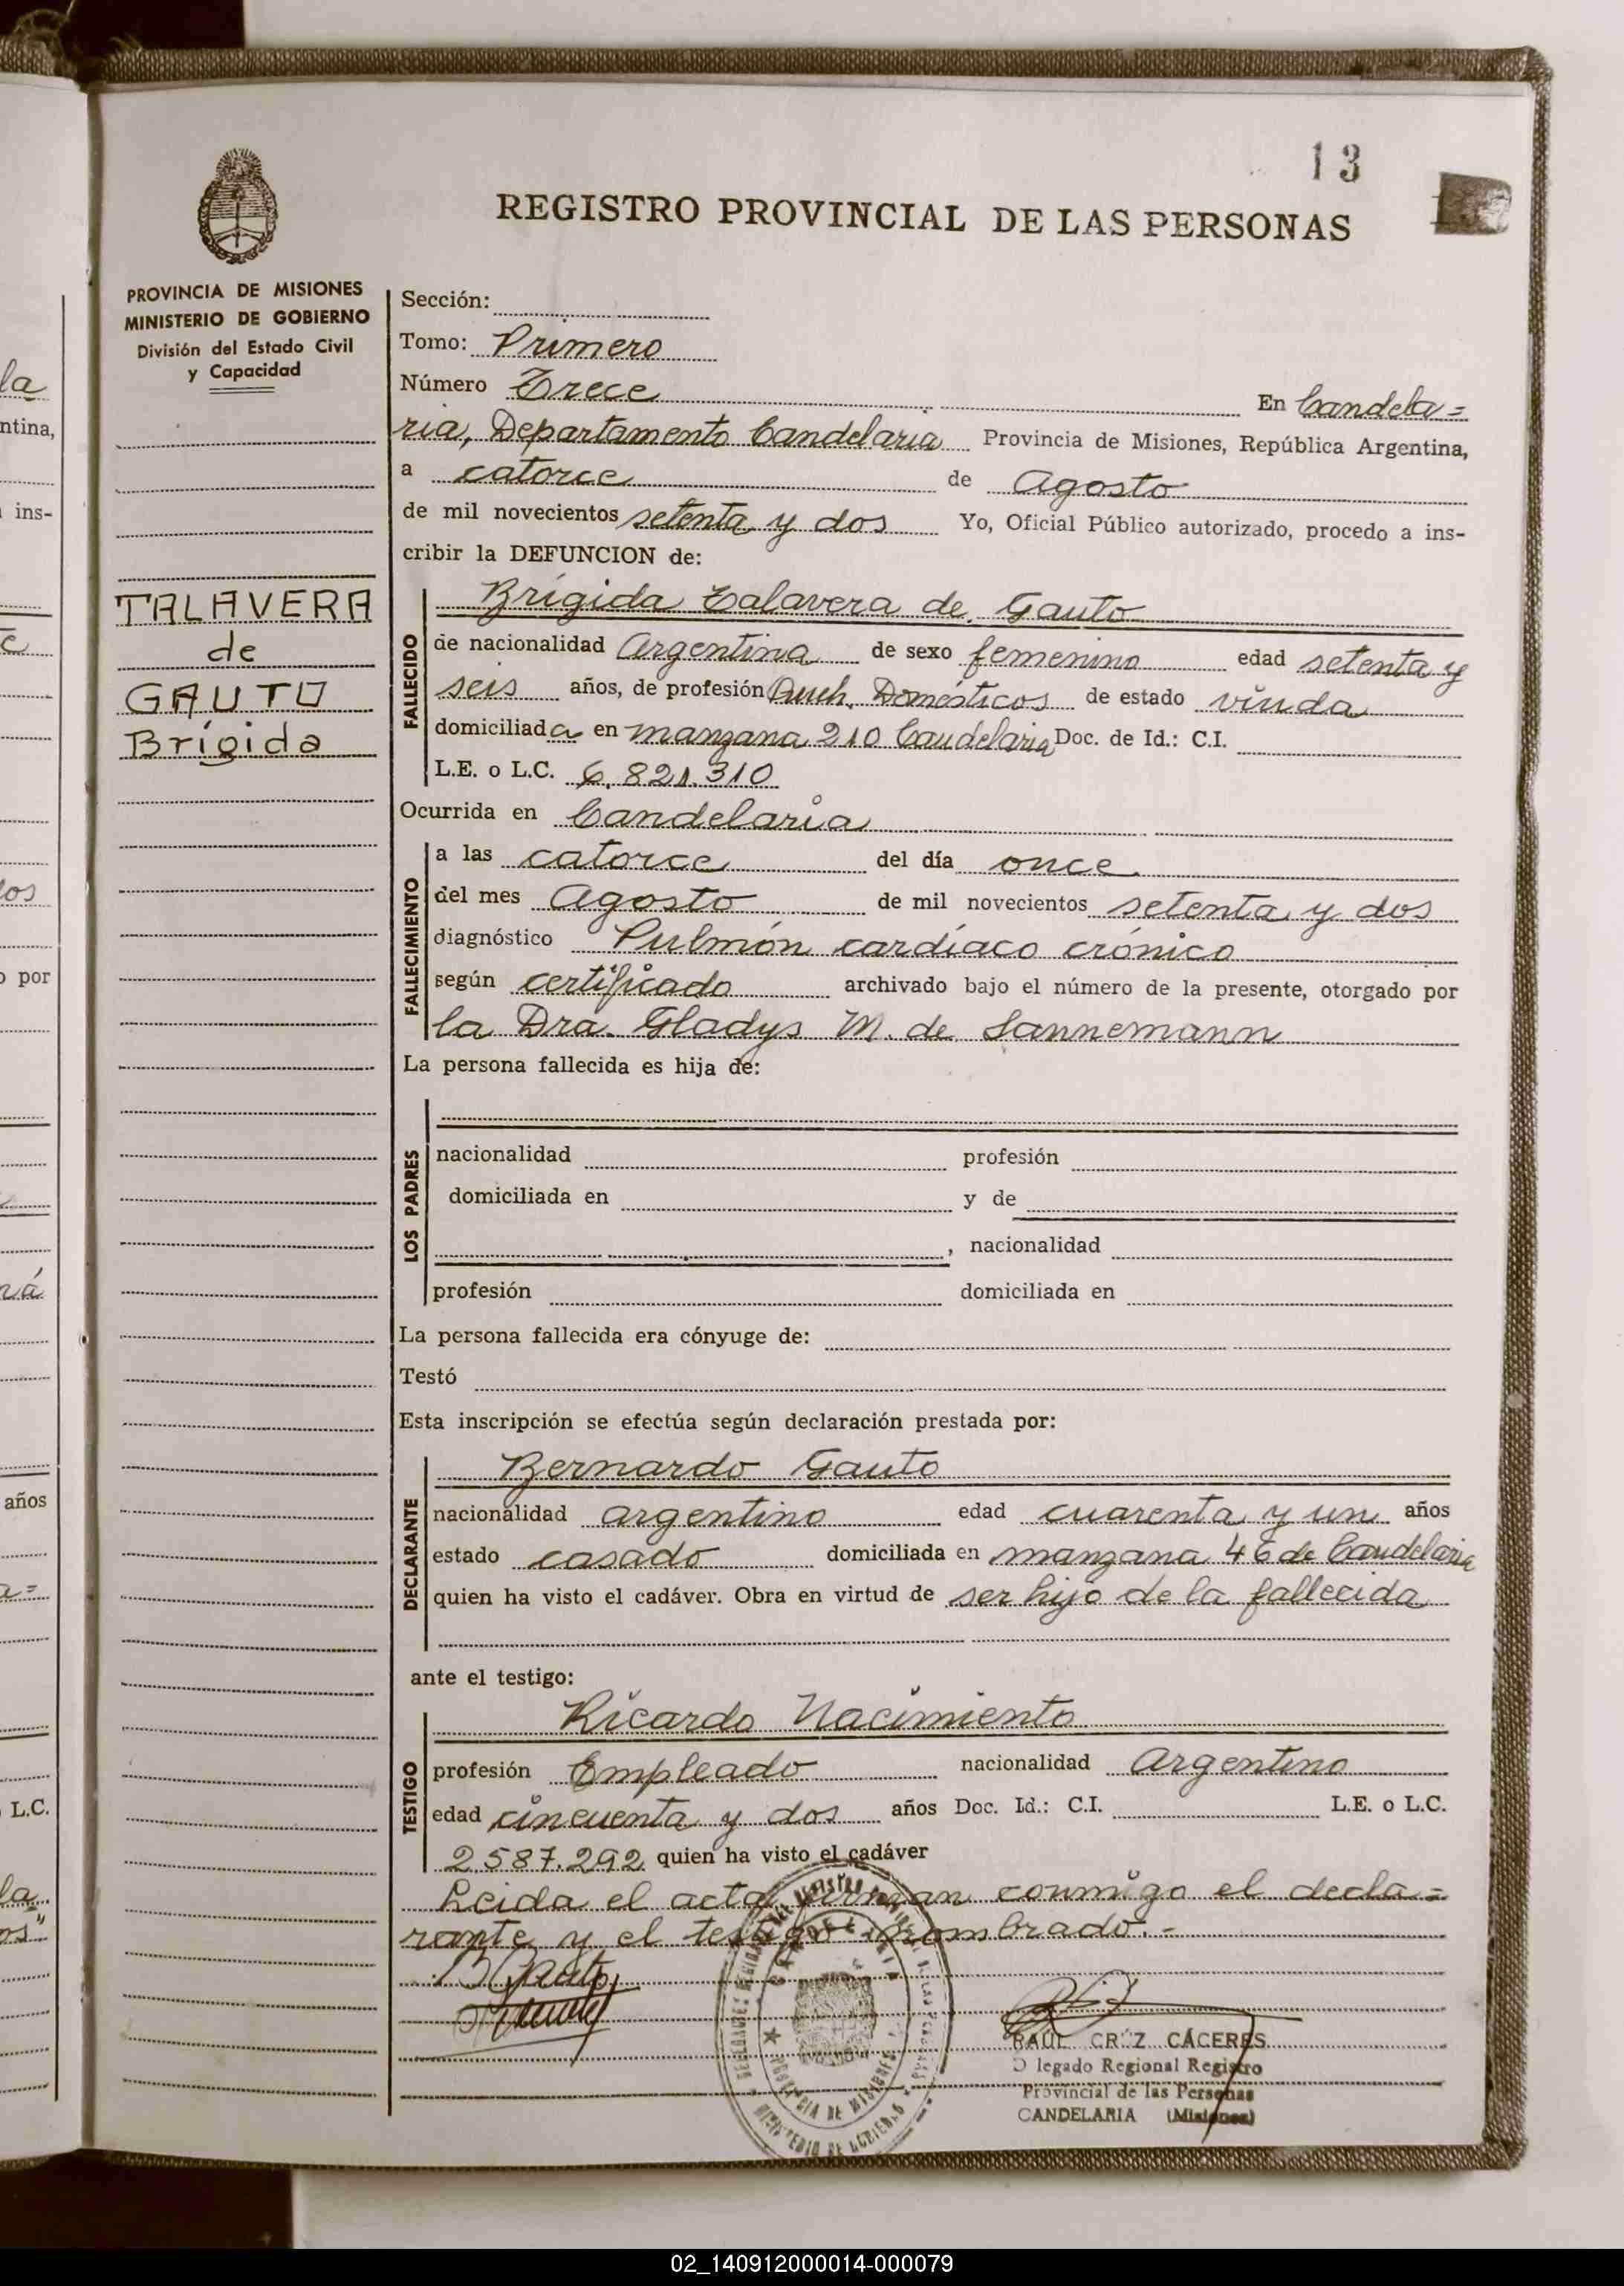 13
REGISTRO PROVINCIAL DE LAS PERSONAS
PROVINCIA DE MISIONES
MINISTERIO DE GOBIERNO
División del Estado Civil
y Capacidad
TALAVERA
de
GAUTO
Brígida
Sección:
Tomo: Primero
Número Trece En Candela=
ria, Departamento Candelaria Provincia de Misiones, República Argentina,
a catorce de Agosto
de mil novecientos setenta y dos Yo, Oficial Público autorizado, procedo a ins-
cribir la DEFUNCION de:
FALLECIDO
Brígida Talavera de Gauto
de nacionalidad Argentina de sexo femenino edad setenta y
seis años, de profesión Domésticos de estado viuda
domiciliada en manzana 210 Candelaria Doc. de Id.: C.I.
L.E. o L.C. 6.821.310
Ocurrida en Candelaria
FALLECIMIENTO
a las catorce del día once
del mes Agosto de mil novecientos setenta y dos
diagnóstico Pulmón cardíaco crónico
según certificado archivado bajo el número de la presente, otorgado por
la Dra. Gladys M. de Sannemann
La persona fallecida es hija de:
LOS PADRES
nacionalidad profesión
domiciliada en y de
, nacionalidad
profesión domiciliada en
La persona fallecida era cónyuge de:
Testó
Esta inscripción se efectúa según declaración prestada por:
DECLARANTE
Bernardo Gauto
nacionalidad argentino edad cuarenta y un años
estado casado domiciliada en manzana 46 de Candelaria
quien ha visto el cadáver. Obra en virtud de ser hijo de la fallecida
ante el testigo:
TESTIGO
Ricardo Nacimiento
profesión Empleado nacionalidad Argentino
edad cincuenta y dos años Doc. Id.: C.I. L.E. o L.C.
2587.292 quien ha visto el cadáver
Leida el acta firman conmigo el decla=
rante y el testigo nombrado.=
B Gauto
RAÚL CRUZ CÁCERES
D legado Regional Registro
Provincial de las Personas
CANDELARIA (Misiones)
PROVINCIA DE MISIONES
MINISTERIO DE GOBIERNO
la
ntina,
ins-
los
por
ná
años
L.C.
la
os"
02_140912000014-000079